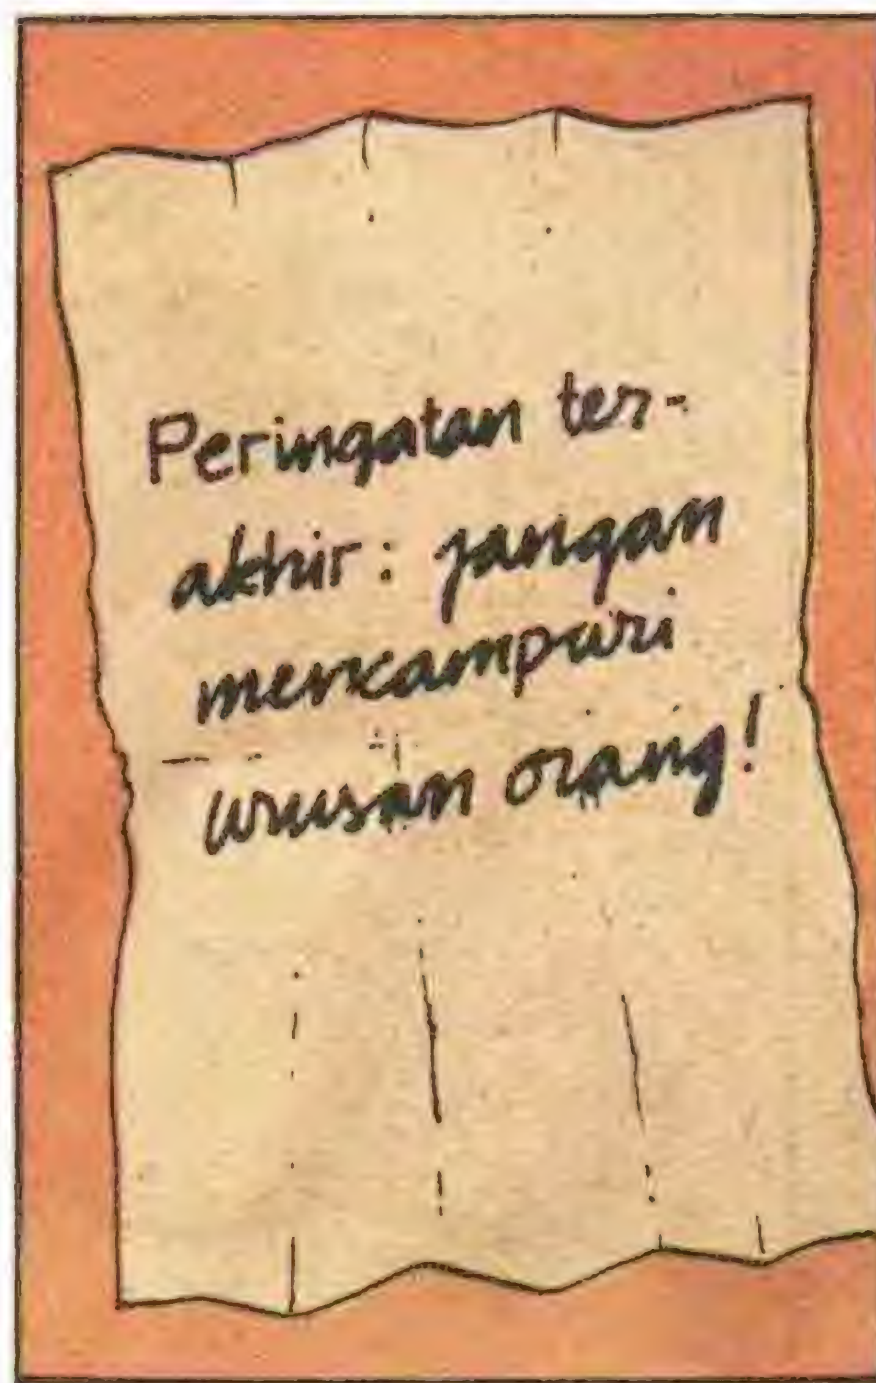 Peringatan ter-
akhir: jangan
mencampuri
urusan orang!